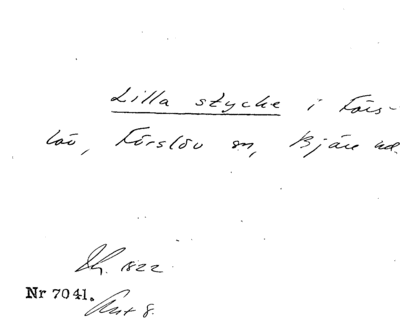 Lilla stycke i Förs-
löv, Förslöv sn, Bjäre hd.
Sk. 1822
Nr 7041.
Akt 8.